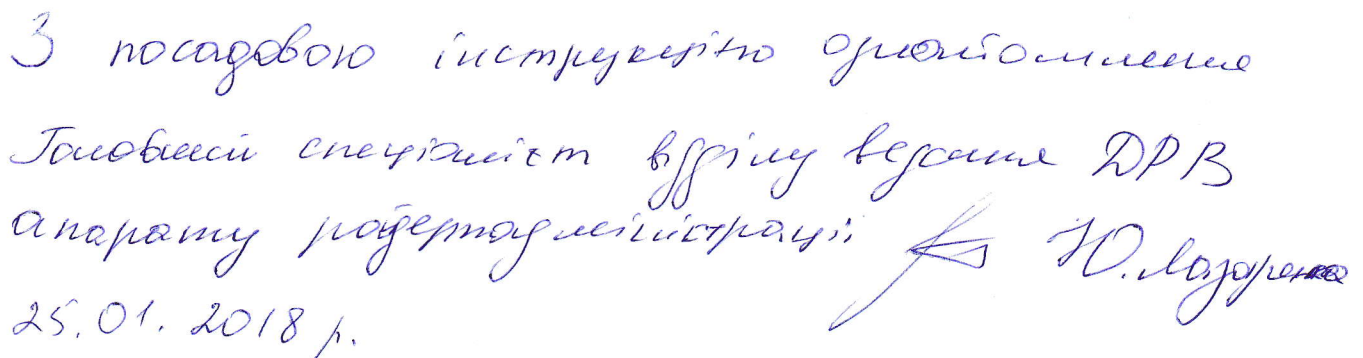 З посадовою інструкцією ознайомлена
Головний спеціаліст відділу ведення ДРВ
апарату райдержадміністрації Ю. Лазаренко
25.01.2018 р.